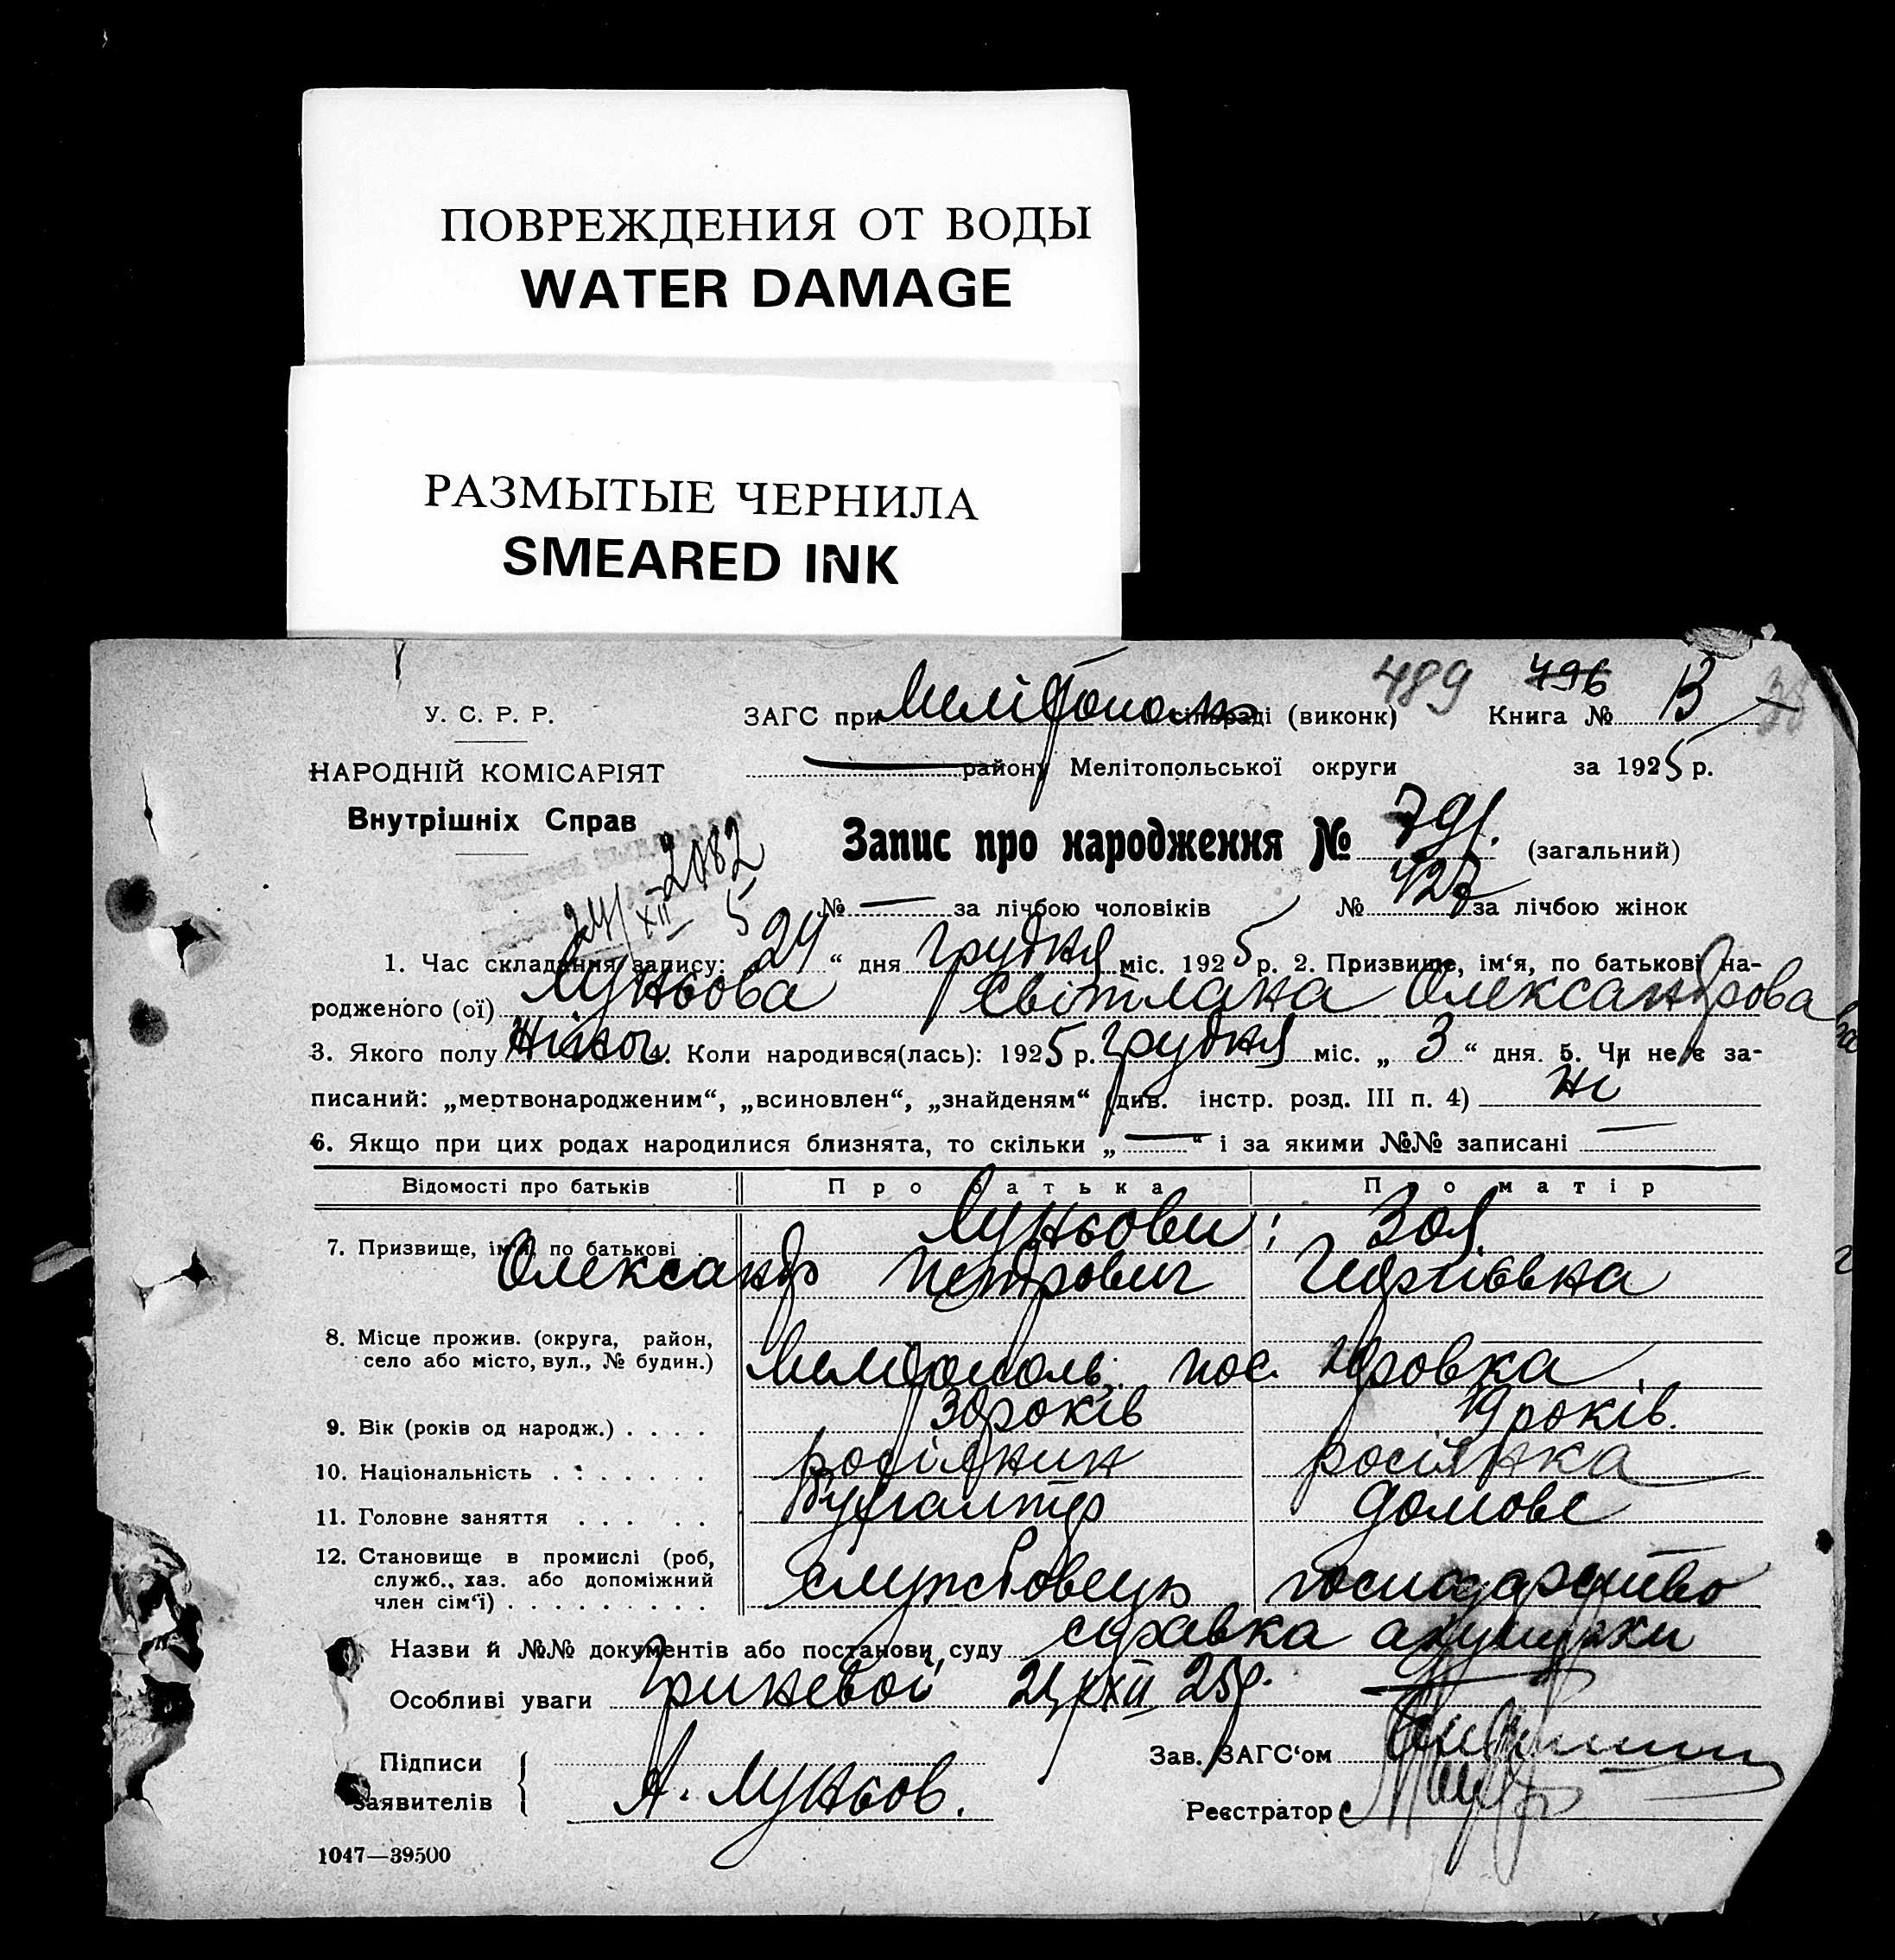 ПОВРЕЖДЕНИЯ ОТ ВОДЫ
WATER DAMAGE
РАЗМЫТЫЕ ЧЕРНИЛА
SMEARED INK
489 796 38
У. С. Р. Р. ЗАГС при Мелітополь сільраді (виконк) Книга № В
НАРОДНІЙ КОМІСАРІЯТ району Мелітопольської округи за 1925 р.
Внутрішніх Справ
Запис про народження № 791. (загальний)
2082
24/XII 5
№ — за лічбою чоловіків № 427 за лічбою жінок
1. Час складання запису: 24 “ дня грудня міс. 1925 р. 2. Призвище, ім‘я, по батькові на-
родженого (ої) Луньова Світлана Олександрова
3. Якого полу жіноч. 4. Коли народився(лась): 1925 р. грудня міс. „ 3 “ дня. 5. Чи не є за-
писаний: „мертвонародженим“, „всиновлен“, „знайденям“ (див. інстр. розд. III п. 4) ні
6. Якщо при цих родах народилися близнята, то скільки „ — “ і за якими №№ записані —
Відомості про батьків Про батька Про матір
Луньови; Зоя
7. Призвище, ім‘я, по батькові
Олександр Петрович
8. Місце прожив. (округа, район,
село або місто, вул., № будин.) Мелітополь, пос.
9. Вік (років од народж.) . . . . 30 років 19 років.
10. Національність . . . . . . . росіянин росіянка
11. Головне заняття . . . . . Бухгалтер домове
12. Становище в промислі (роб,
служб., хаз. або допоміжний
член сім‘ї) . . . . . . . . . службовець господарство
Назви й №№ документів або постанови суду справка акушерки
Особливі уваги Гриневой 24/XII 25р.
Підписи
Зав. ЗАГС‘ом
заявителів А. Луньов.
Реєстратор
1047—39500